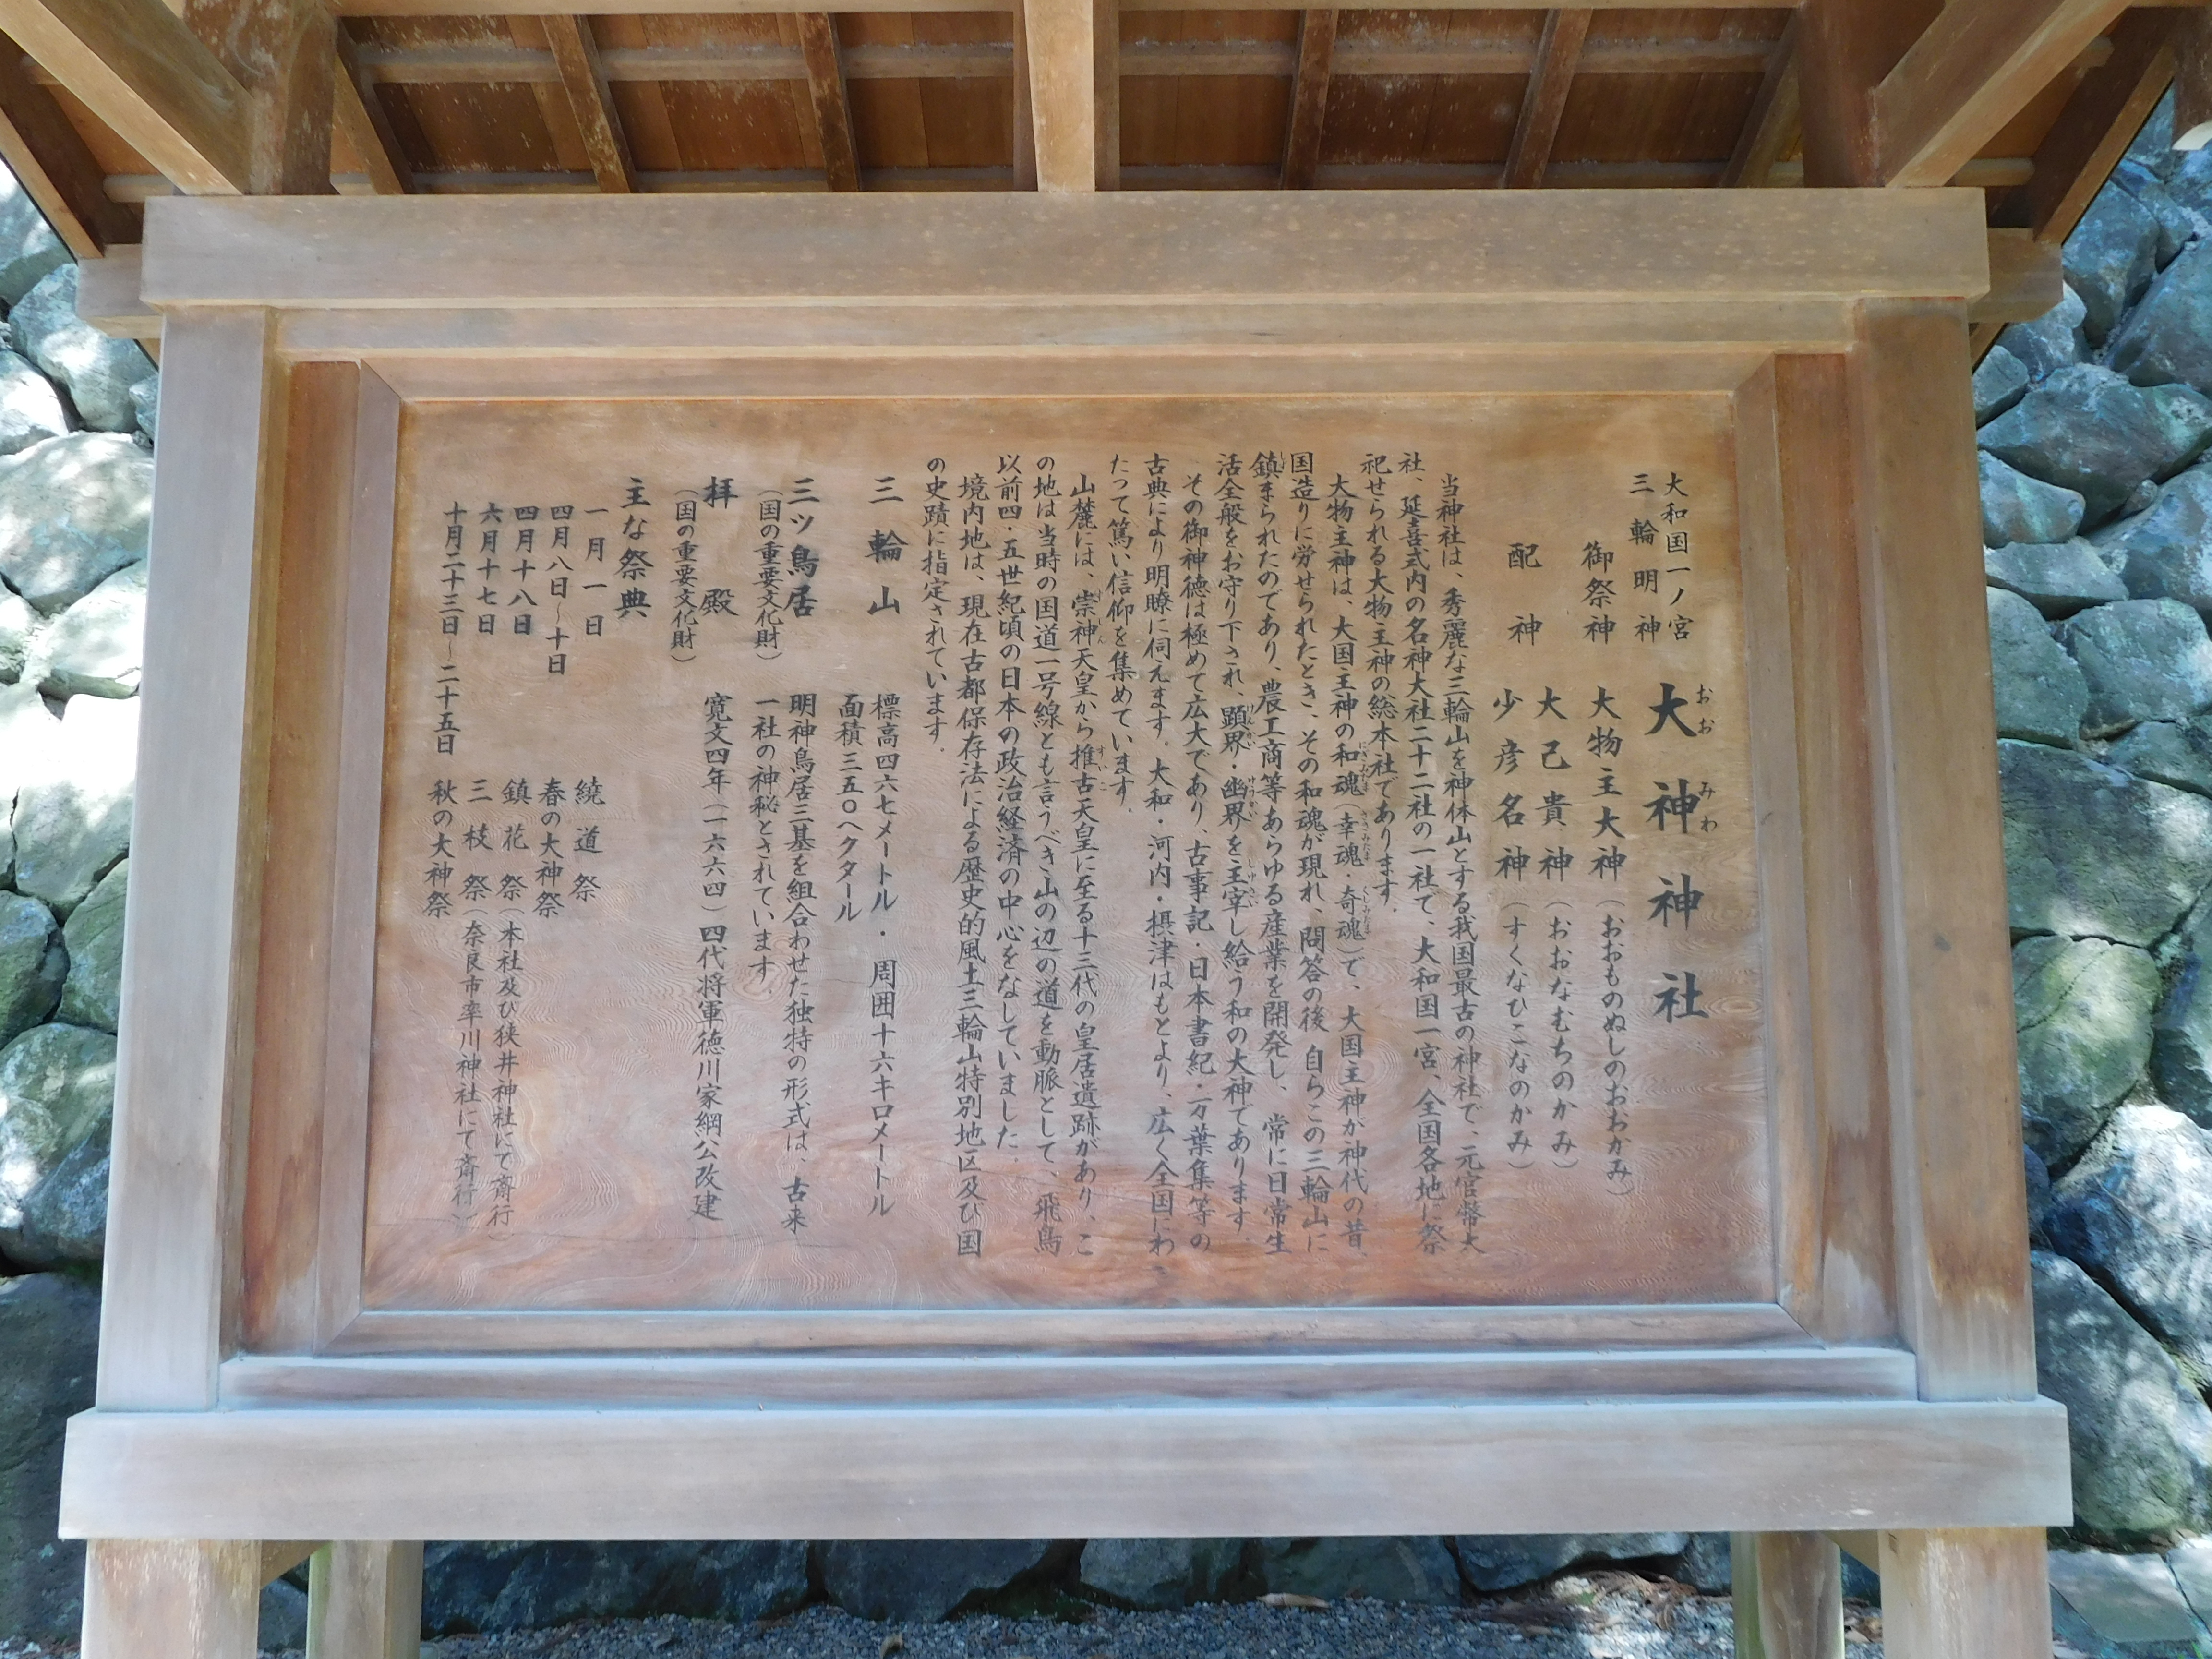 大和国一ノ宮
三輪明神
大神神社
おおみわ
御祭神 大物主大神（おおものぬしのおおかみ）
配神 大己貴神（おおなむちのかみ）
少彦名神（すくなひこなのかみ）
当神社は、秀麗な三輪山を神体山とする我国最古の神社で、元官幣大
社、延喜式内の名神大社二十二社の一社で、大和国一宮、全国各地に祭
祀せられる大物主神の総本社であります。
大物主神は、大国主神の和魂（幸魂・奇魂）で、大国主神が神代の昔、
国造りに労せられたとき、その和魂が現れ、問答の後 自らこの三輪山に
鎮まられたのであり、農工商等あらゆる産業を開発し、常に日常生
活全般をお守り下され、顕界・幽界を主宰し給う和の大神であります。
その御神徳は極めて広大であり、古事記・日本書紀・万葉集等の
古典により明瞭に伺えます。大和・河内・摂津はもとより、広く全国にわ
たって篤い信仰を集めています。
山麓には、崇神天皇から推古天皇に至る十三代の皇居遺跡があり、こ
の地は当時の国道一号線とも言うべき山の辺の道を動脈として、飛鳥
以前四・五世紀頃の日本の政治経済の中心をなしていました。
境内地は、現在古都保存法による歴史的風土三輪山特別地区及び国
の史蹟に指定されています。
三輪山 標高四六七メートル・周囲十六キロメートル
面積三五〇ヘクタール
三ツ鳥居 明神鳥居三基を組合わせた独特の形式は、古来
（国の重要文化財） 一社の神秘とされています。
拝殿 寛文四年（一六六四）四代将軍徳川家綱公改建
（国の重要文化財）
主な祭典
一月一日 繞道祭
四月八日～十日 春の大神祭
四月十八日 鎮花祭（本社及び狭井神社にて斎行）
六月十七日 三枝祭（奈良市率川神社にて斎行）
十月二十三日～二十五日 秋の大神祭